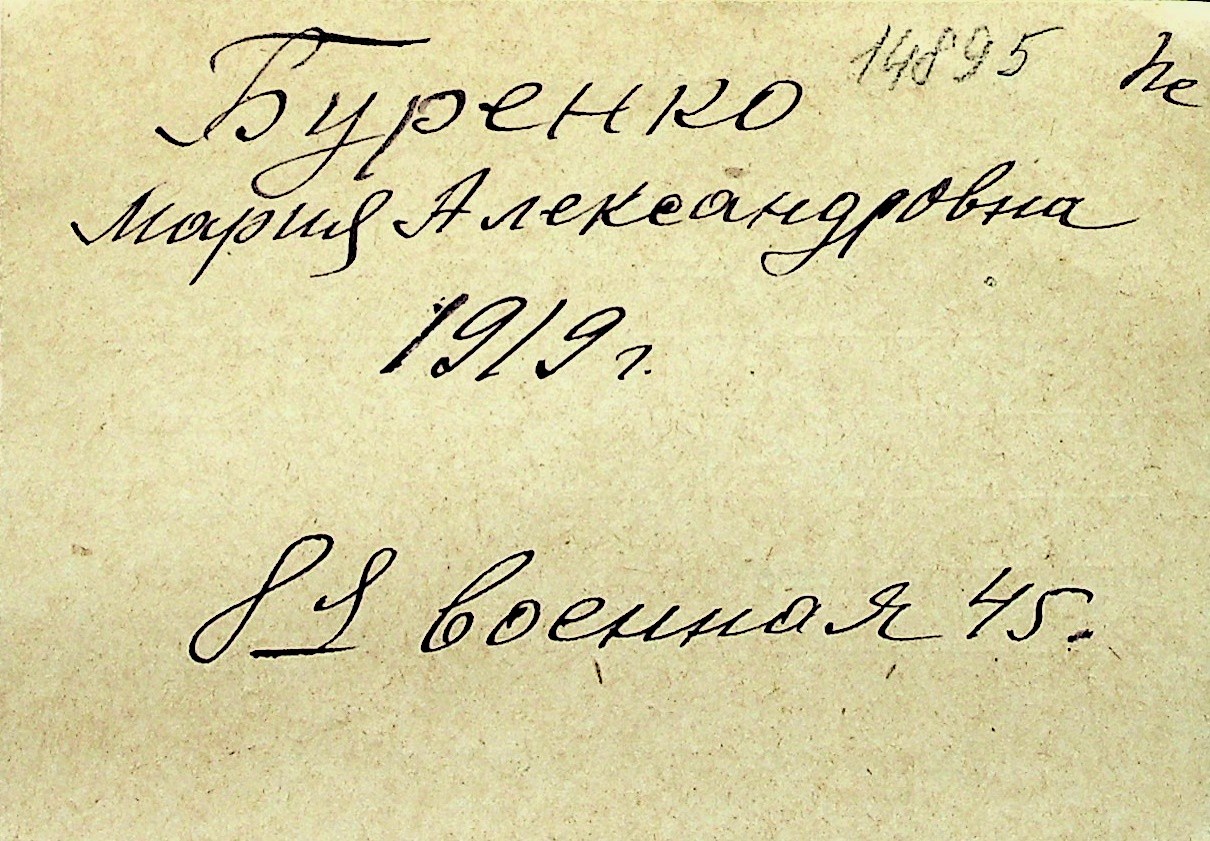 14895
Буренко
Мария Александровна
1919 г.
8я военная 45.